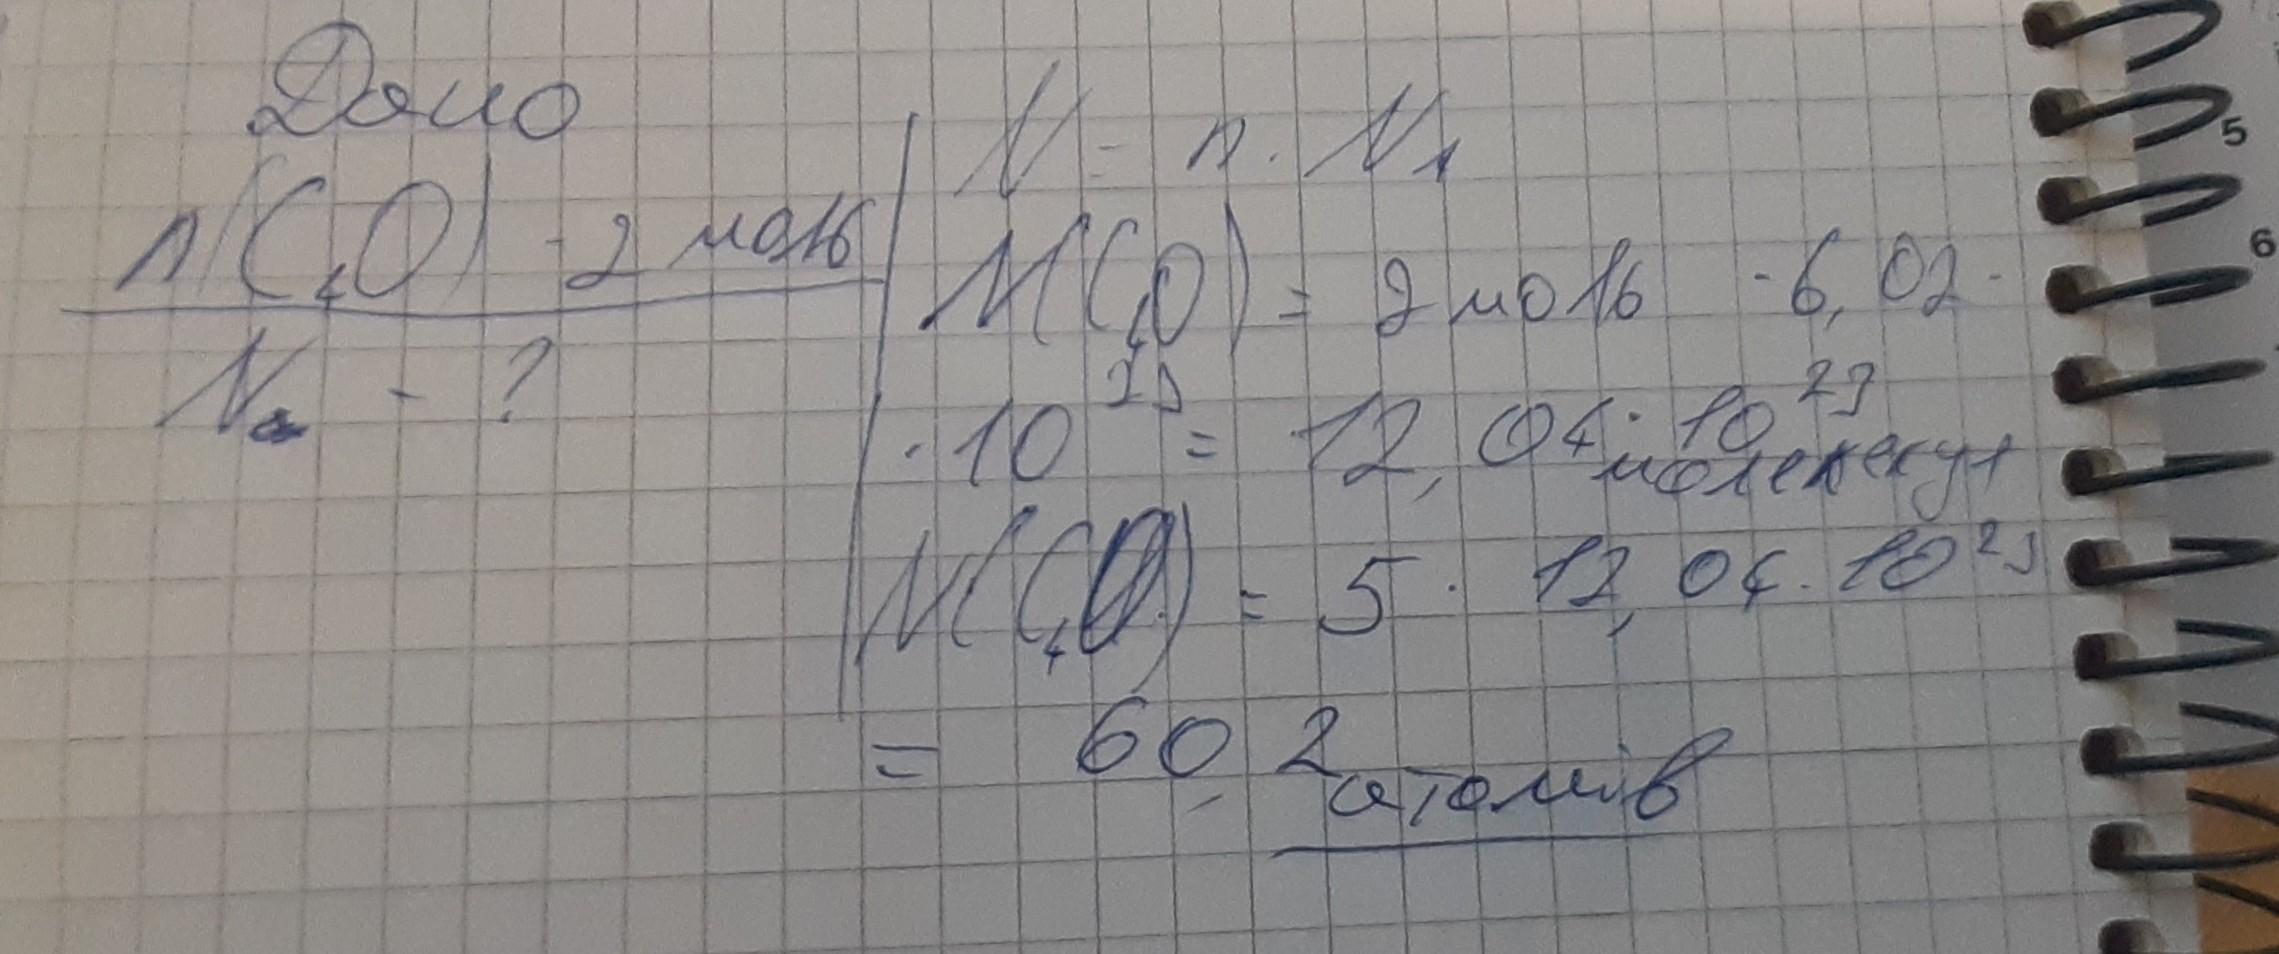 Дано
n(C₄O) - 2 моль
Nₐ - ?
N = n · Nₐ
N(C₄O) = 2 моль · 6,02 ·
· 10²³ = 12,04 · 10²³
молекекул
N(C₄O) = 5 · 12,04 · 10²³
= 60,2 атомів
5
6